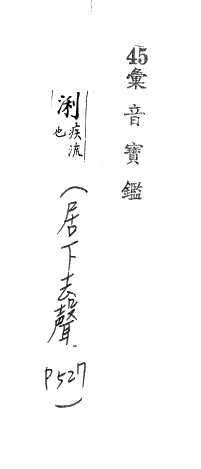 45彙音寶鑑
浰疾流也
(居下去聲. P527)